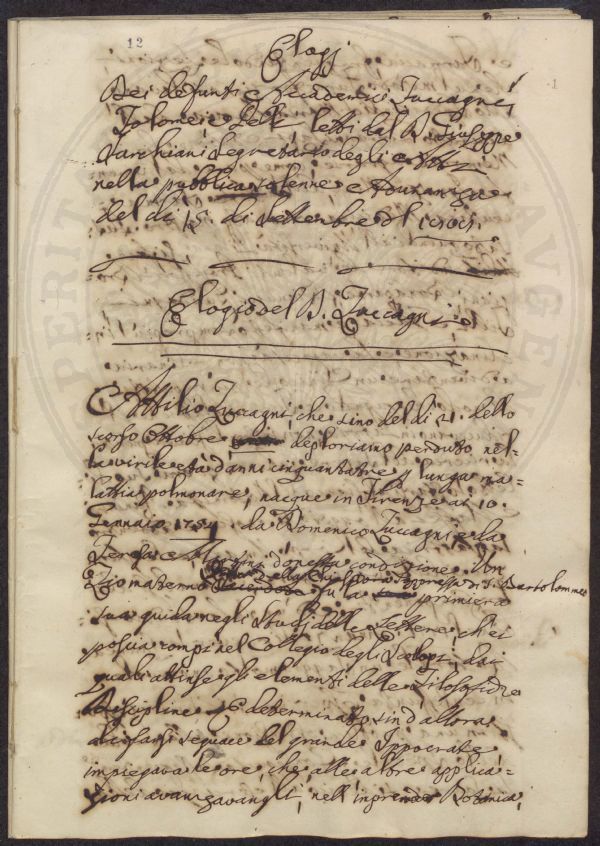 12
Elogj
Dei defunti Accademici Zuccagni
Tolomei e letti dal D. Giuseppe
Sarchiani Segretario degli Atti
nella pubblica solenne Adunanza
del dì 15. di Settembre
Elogio del D. Zuccagni
Attilio Zuccagni, che sino del dì 21. dello
scorso Ottobre deploriamo perduto nel-
la virile età d'anni cinquantatre p lunga ma-
lattia polmonare, nacque in Firenze ai 10.
Gennaio 1754. da Domenico Zuccagni e da
Teresa Martini d'onesta condizione. Un
della soppressa di S. Bartolommeo
Zio materno fu la primiera
sua guida negli Studj delle Lettere ch'ei
poscia compì nel Collegio degli Scolopj, dai
quali attinse gli elementi delle Filosofiche
Discipline. E determinato sin d'allora
a farsi seguace del grande Ippocrate
impiegava le ore, che alle altre applica-
zioni avanzavangli, nell'
Botanica,